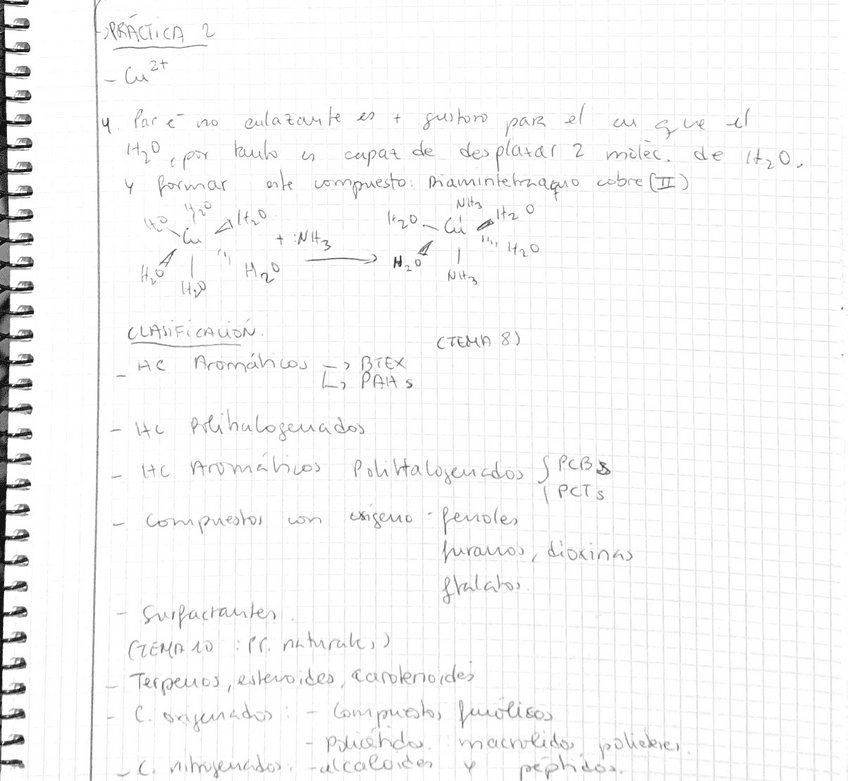 →PRÁCTICA 2
- Cu²⁺
4. Par é no enlazante es + gustoso para el cu que el
H₂O, por tanto es capaz de desplazar 2 moléc. de H₂O,
y formar este compuesto: Diamintetraaquo cobre (II)
NH₃
H₂O H₂O H₂O H₂O H₂O
Cu + :NH₃ → Cu
H₂O H₂O H₂O H₂O
H₂O NH₃
CLASIFICACIÓN.
(TEMA 8)
- HC Aromáticos → BTEX
↳ PAHs
- HC Polihalogenados
- HC Aromáticos PoliHalogenados { PCBs
PCTs
- Compuestos con oxígeno - fenoles
furanos, dioxinas
ftalatos.
- Surfactantes.
(TEMA 10 : Pr. naturales)
- Terpenos, esteroides, carotenoides
- C. oxigenados: - Compuestos fenólicos
- policétidos. macrolidos, poliéteres.
- C. nitrogenados. - alcaloides y péptidos.